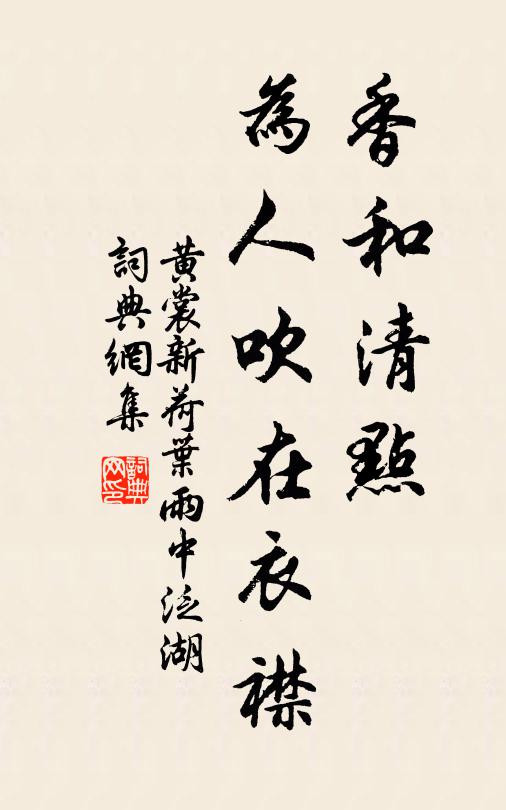 香和清點
為人吹在衣襟
黃裳新荷葉雨中泛湖
詞典網集
詞典
网印